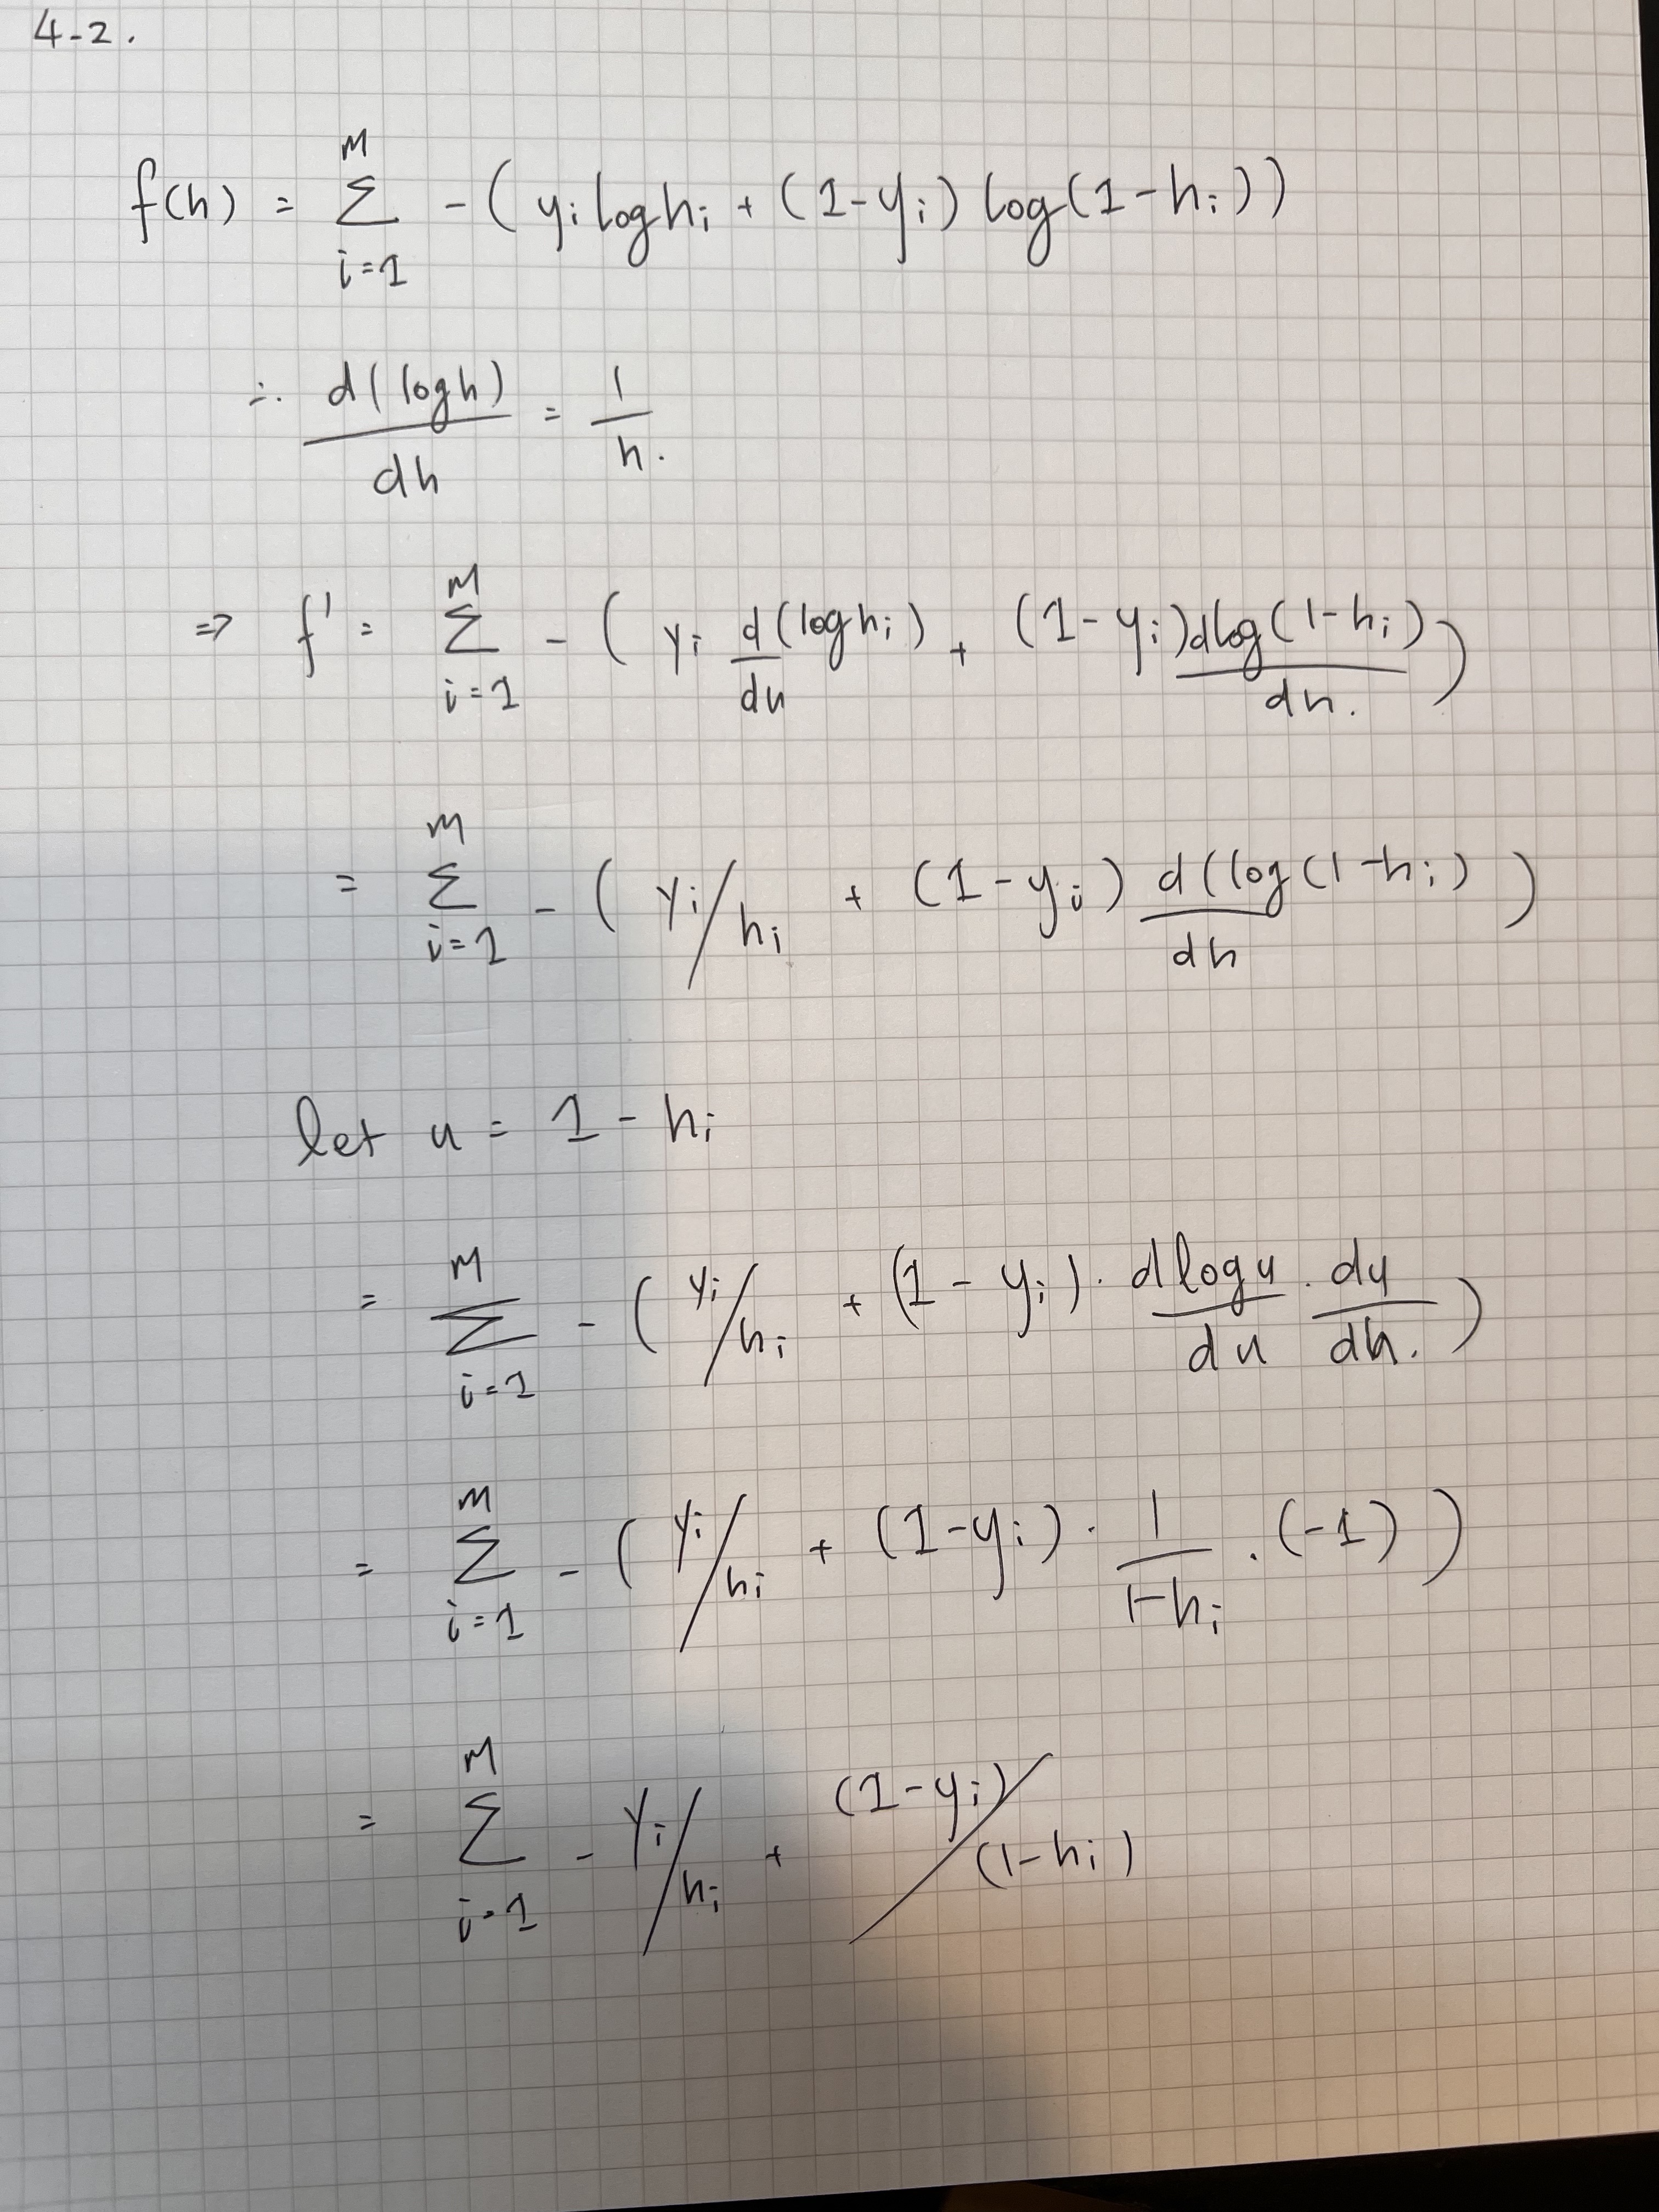 4-2.
f(h) = M Σ i=1 - ( yᵢ log hᵢ + (1-yᵢ) log(1-hᵢ))
∴ d(log h) / dh = 1 / h.
⇒ f' = M Σ i=1 - ( yᵢ d/dh (log hᵢ) + (1-yᵢ) d log(1-hᵢ) / dh. )
= M Σ i=1 - ( yᵢ/hᵢ + (1-yᵢ) d(log(1-hᵢ) / dh )
let u = 1 - hᵢ
= M Σ i=1 - ( yᵢ/hᵢ + (1-yᵢ) · d log u / du · du / dh. )
= M Σ i=1 - ( yᵢ/hᵢ + (1-yᵢ) · 1 / 1-hᵢ · (-1) )
= M Σ i=1 - yᵢ/hᵢ + (1-yᵢ)/(1-hᵢ)